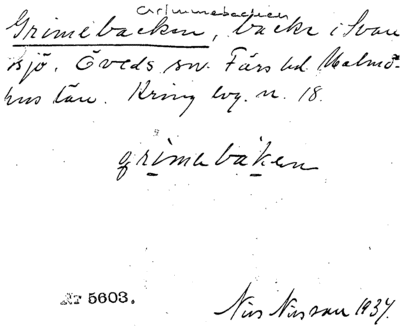 Grimmebacken
Grimebacken, backe i Svan
sjö. Öveds sn. Färs hd Malmö-
hus län. Kring bvg. n. 18.
grimebaken
Nr 5603.
Nils Nilsson 1934.